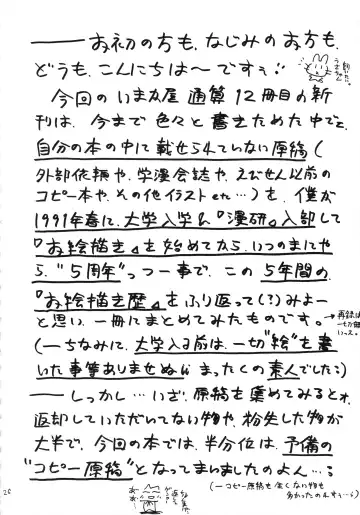 ――― お初の方も、なじみのお方も、
どうも、こんにちは～ですぅ：
今回の いま丸屋 通算 12冊目の新
刊は、今まで 色々と 書きためた 中でと、
自分の本の中に 載せられていない 原稿（
外部依頼や、学漫会誌や、えびせん以前の
コピー本や、その他イラスト etc…）を、僕が
1991年春に、大学入学＆『漫研』入部して
『お絵描き』を 始めてから、いつのまにや
ら、“5周年”っつー事で、この 5年間の、
『お絵描き歴』を ふり返って（？）みよー
と思い、一冊にまとめてみたものです。
（―ちなみに、大学入る前は、一切“絵”を 書
いた事等ありませぬ まったくの 素人でした：）
――― しかし…いざ、原稿を 集めてみるとォ、
返却していただいてない物や、紛失した物が
大半で、今回の本では、半分位は、予備の
“コピー原稿”となってまいましたのよん…：
（―コピー原稿も 全くない物も
多かったのねすぅ…）
→再録は